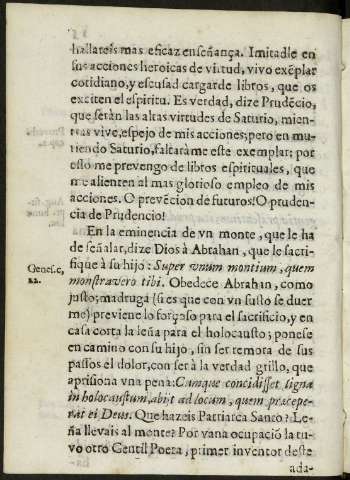 hallareis mas eficaz enseñança. Imitadle en
sus acciones heroicas de virtud, vivo exẽplar
cotidiano, y escusad cargar de libros, que os
exciten el espiritu. Es verdad, dize Prudẽcio,
que seràn las altas virtudes de Saturio, mien-
tras vive, espejo de mis acciones; pero en mu-
riendo Saturio, faltaràme este exemplar: por
esso me prevengo de libros espirituales, que
me alienten al mas glorioso empleo de mis
acciones. O prevẽcion de futuros! O pruden-
cia de Prudencio!
En la eminencia de vn monte, que le ha
de señalar, dize Dios à Abrahan, que le sacri-
fique à su hijo: Super vnum montium, quem
Genes. c.
22.
monstravero tibi. Obedece Abrahan, como
justo; madruga (si es que con vn susto se duer
me) previene lo forçoso para el sacrificio, y en
casa corta la leña para el holocausto; ponese
en camino con su hijo, sin ser remora de sus
passos el dolor, con ser à la verdad grillo, que
aprisiona vna pena: Cumque concidisset ligna
in holocaustum, abijt ad locum, quem præcepe-
rat ei Deus. Que hazeis Patriarca Santo? Le-
ña llevais al monte? Por vana ocupaciõ la tu-
vo otro Gentil Poeta, primer inventor deste
ada-